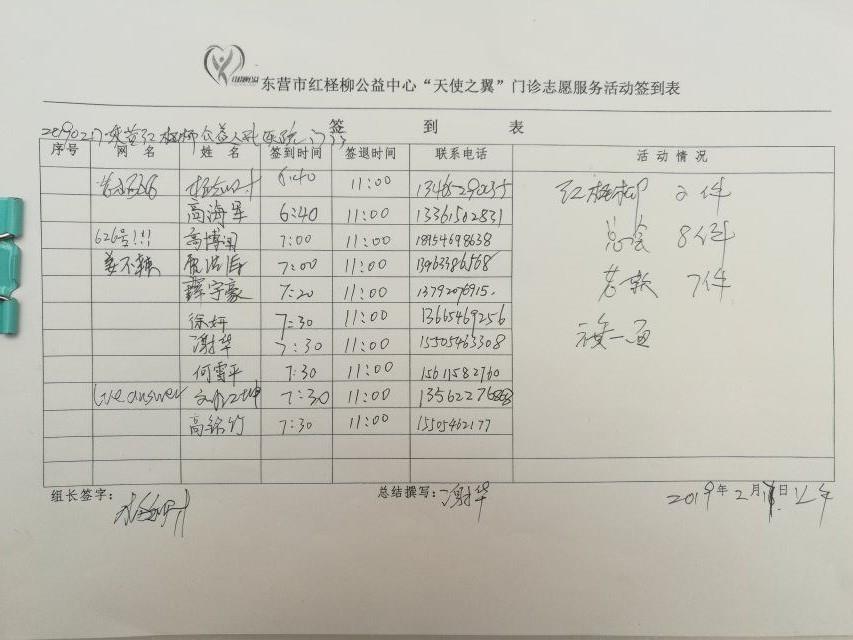 东营市红柽柳公益中心“天使之翼”门诊志愿服务活动签到表
签 到 表
序号 网 名 姓 名 签到时间 签退时间 联系电话 活 动 情 况
6:40 11:00 红柽柳 2件
高海军 6:40 11:00 13361502831
626号!!! 高博闻 7:00 11:00 18954698638 总会 8件
姜不辣 7:00 11:00 13963386568
薛宇豪 7:20 11:00 13792076915 7件
徐妍 7:30 11:00 13665469256
谢华 7:30 11:00 15505463308
何雪平 7:30 11:00 15611582760
answer 7:30 11:00
高铭竹 7:30 11:00 15505462177
组长签字: 总结撰写: 谢华 2019年2月 日